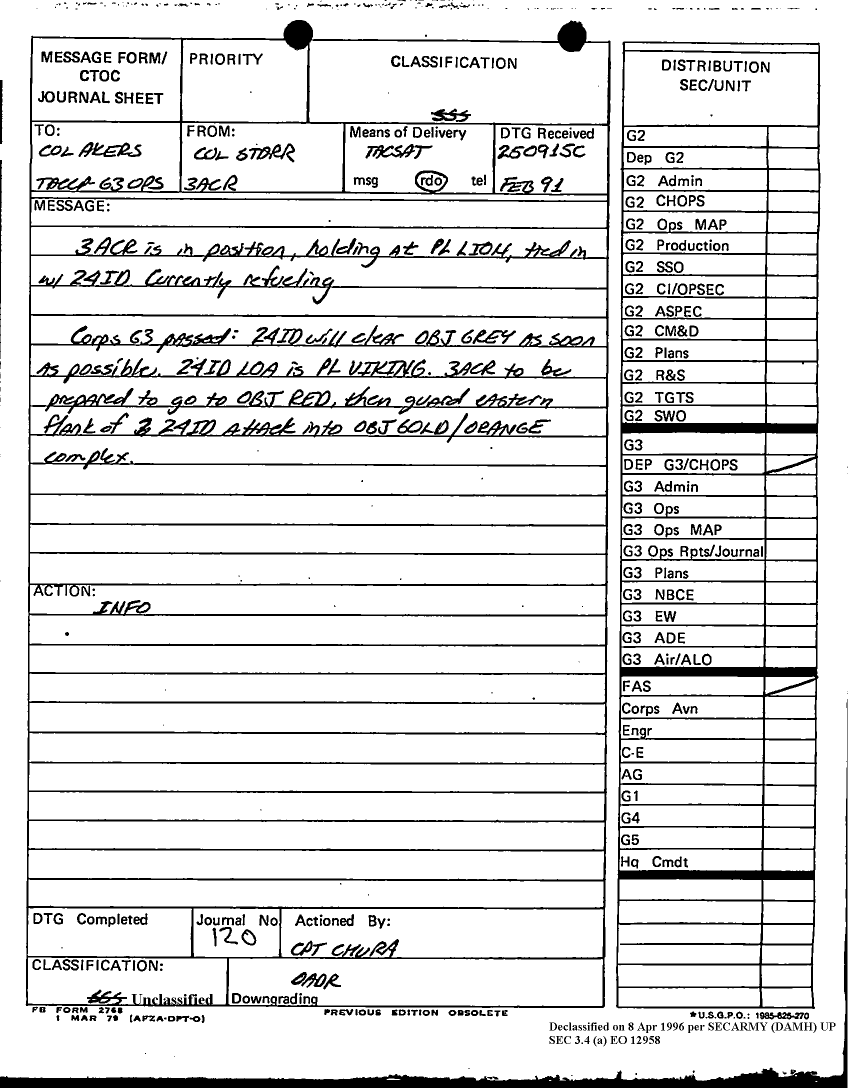 MESSAGE FORM/
CTOC
JOURNAL SHEET
PRIORITY
CLASSIFICATION
SSS
TO:
COL AKERS
TACCP G3 OPS
FROM:
COL STARR
3ACR
Means of Delivery
TACSAT
msg rdo tel
DTG Received
250915C
FEB 91
MESSAGE:
3ACR is in position, holding at PL LION, tied in
w/ 24ID. Currently refueling
Corps G3 passed: 24ID will clear OBJ GREY as soon
as possible. 24ID LOA is PL VIKING. 3ACR to be
prepared to go to OBJ RED, then guard eastern
flank of 24ID attack into OBJ GOLD/ORANGE
complex.
ACTION:
INFO
DTG Completed
Journal No
120
Actioned By:
CPT CHURA
CLASSIFICATION:
SSS Unclassified
OADR
Downgrading
FB FORM 2768
1 MAR 79 (AFZA-DPT-O)
PREVIOUS EDITION OBSOLETE
DISTRIBUTION
SEC/UNIT
G2
Dep G2
G2 Admin
G2 CHOPS
G2 Ops MAP
G2 Production
G2 SSO
G2 CI/OPSEC
G2 ASPEC
G2 CM&D
G2 Plans
G2 R&S
G2 TGTS
G2 SWO
G3
DEP G3/CHOPS
G3 Admin
G3 Ops
G3 Ops MAP
G3 Ops Rpts/Journal
G3 Plans
G3 NBCE
G3 EW
G3 ADE
G3 Air/ALO
FAS
Corps Avn
Engr
C-E
AG
G1
G4
G5
Hq Cmdt
*U.S.G.P.O.: 1985-625-270
Declassified on 8 Apr 1996 per SECARMY (DAMH) UP
SEC 3.4 (a) EO 12958